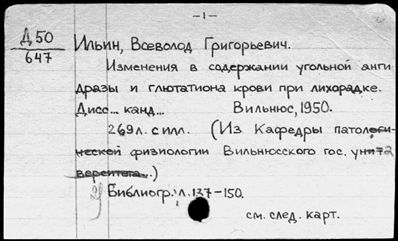 - 1 -
Д 50
647
Ильин, Всеволод Григорьевич.
Изменения в содержании угольной анги-
дразы и глютатиона крови при лихорадке.
Дисс... канд... Вильнюс, 1950.
269 л. с илл. (Из Кафедры патологи-
ческой физиологии Вильнюсского гос. уни-
верситета...)
Библиогр.: л. 137-150.
см. след. карт.